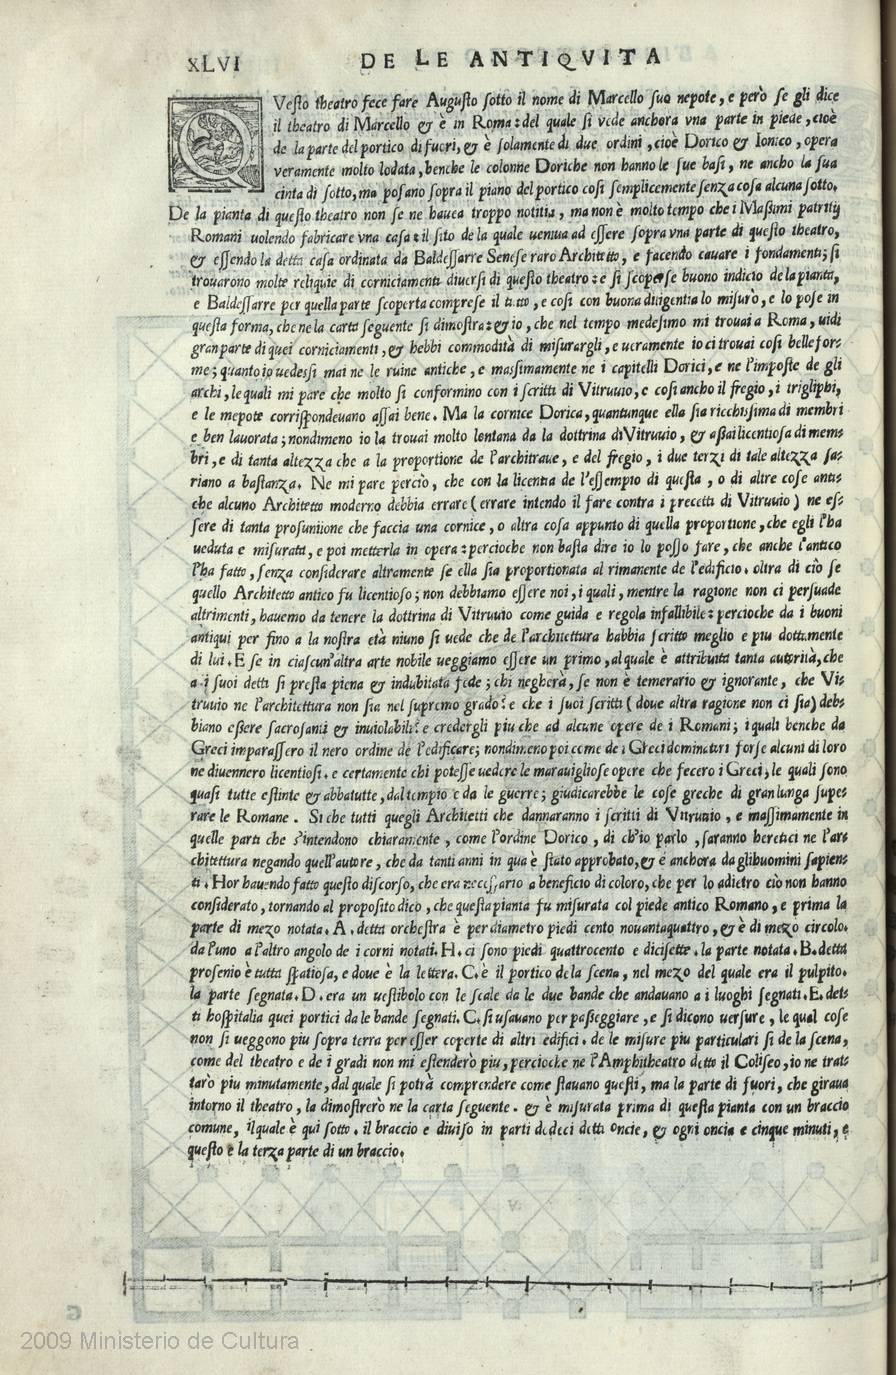 XLVI DE LE ANTIQVITA
QVesto theatro fece fare Augusto sotto il nome di Marcello suo nepote, e però se gli dice
il theatro di Marcello & è in Roma: del quale si vede anchora vna parte in piede, cioè
de la parte del portico di fuori, & è solamente di due ordini, cioè Dorico & Ionico, opera
veramente molto lodata, benche le colonne Doriche non hanno le sue basi, ne ancho la sua
cinta di sotto, ma posano sopra il piano del portico cosi semplicemente senza cosa alcuna sotto.
De la pianta di questo theatro non se ne hauea troppo notitia, ma non è molto tempo che i Massimi patritij
Romani uolendo fabricare vna casa: il sito de la quale uenua ad essere sopra vna parte di questo theatro,
& essendo la detta casa ordinata da Baldessarre Senese raro Architetto, e facendo cauare i fondamenti; si
trouarono molte reliquie di corniciamenti diuersi di questo theatro: e si scoperse buono indicio de la pianta,
e Baldessarre per quella parte scoperta comprese il tutto, e cosi con buona diligentia lo misurò, e lo pose in
questa forma, che ne la carta seguente si dimostra: & io, che nel tempo medesimo mi trouai a Roma, uidi
gran parte di quei corniciamenti, & hebbi commodità di misurargli, e ueramente io ci trouai cosi belle for=
me; quanto io uedessi mai ne le ruine antiche, e massimamente ne i capitelli Dorici, e ne l'imposte de gli
archi, le quali mi pare che molto si conformino con i scritti di Vitruuio, e cosi ancho il fregio, i trigliphi,
e le mepote corrispondeuano assai bene. Ma la cornice Dorica, quantunque ella sia ricchissima di membri
e ben lauorata; nondimeno io la trouai molto lontana da la dottrina di Vitruuio, & assai licentiosa di mem=
bri, e di tanta altezza che a la proportione de l'architraue, e del fregio, i due terzi di tale altezza sa=
riano a bastanza. Ne mi pare perciò, che con la licentia de l'essempio di questa, o di altre cose anti=
che alcuno Architetto moderno debbia errare (errare intendo il fare contra i precetti di Vitruuio) ne es=
sere di tanta prosuntione che faccia una cornice, o altra cosa appunto di quella proportione, che egli l'ha
ueduta e misurata, e poi metterla in opera: percioche non basta dire io lo posso fare, che anche l'antico
l'ha fatto, senza considerare altramente se ella sia proportionata al rimanente de l'edificio. oltra di ciò se
quello Architetto antico fu licentioso; non debbiamo essere noi, i quali, mentre la ragione non ci persuade
altrimenti, hauemo da tenere la dottrina di Vitruuio come guida e regola infallibile: percioche da i buoni
antiqui per fino a la nostra età niuno si uede che de l'architettura habbia scritto meglio e piu dottamente
di lui. E se in ciascun'altra arte nobile ueggiamo essere un primo, al quale è attribuita tanta autorità, che
a i suoi detti si presta piena & indubitata fede; chi negherà, se non è temerario & ignorante, che Vi=
truuio ne l'architettura non sia nel supremo grado? e che i suoi scritti (doue altra ragione non ci sia) deb=
biano essere sacrosanti & inuiolabili? e credergli piu che ad alcune opere de i Romani; i quali benche da
Greci imparassero il uero ordine de l'edificare; nondimeno poi come de i Greci dominatori forse alcuni di loro
ne diuennero licentiosi. e certamente chi potesse uedere le marauigliose opere che fecero i Greci, le quali sono
quasi tutte estinte & abbatute, dal tempio e da le guerre; giudicarebbe le cose greche di gran lunga supe=
rare le Romane. Si che tutti quegli Architetti che dannaranno i scritti di Vitruuio, e massimamente in
quelle parti che s'intendono chiaramente, come l'ordine Dorico, di ch'io parlo, saranno heretici ne l'ar=
chitettura negando quell'autore, che da tanti anni in qua è stato approbato, & è anchora da gli huomini sapien=
ti. Hor hauendo fatto questo discorso, che era necessario a beneficio di coloro, che per lo adietro ciò non hanno
considerato, tornando al proposito dico, che questa pianta fu misurata col piede antico Romano, e prima la
parte di mezo notata. A. detta orchestra è per diametro piedi cento nouantaquattro, & è di mezo circolo.
da l'uno a l'altro angolo de i corni notati. H. ci sono piedi quattrocento e dicisette. la parte notata. B. detta
prosenio è tutta spatiosa, e doue è la lettera. C. è il portico de la scena, nel mezo del quale era il pulpito.
la parte segnata. D. era un uestibolo con le scale da le due bande che andauano a i luoghi segnati. E. det=
ti hospitalia quei portici da le bande segnati. C. si usauano per passeggiare, e si dicono uersure, le qual cose
non si ueggono piu sopra terra per esser coperte di altri edifici. de le misure piu particulari si de la scena,
come del theatro e de i gradi non mi estenderò piu, percioche ne l'Amphitheatro detto il Coliseo, io ne trat=
tarò piu minutamente, dal quale si potrà comprendere come stauano questi, ma la parte di fuori, che giraua
intorno il theatro, la dimostrerò ne la carta seguente. & è misurata prima di questa pianta con un braccio
comune, il quale è qui sotto. il braccio e diuiso in parti dodeci detti oncie, & ogni oncia e cinque minuti, e
questo è la terza parte di un braccio.
2009 Ministerio de Cultura